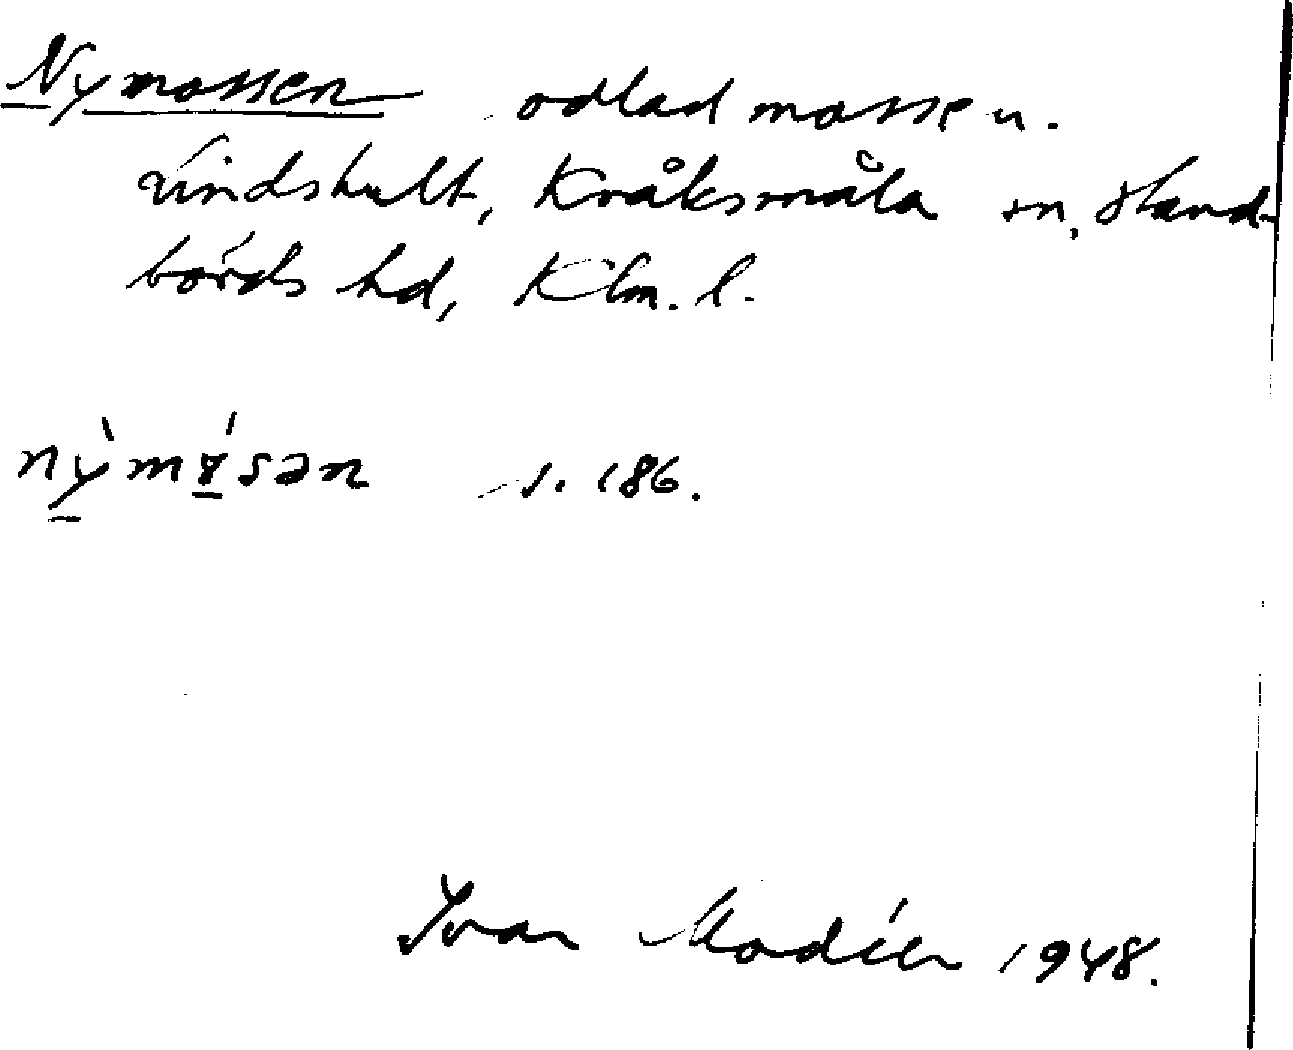 Nymossen odlad mosse u.
Lindshult, Kråksmåla sn, Hand-
börds hd, Klm. l.
s. 186.
Ivar Modéer 1948.